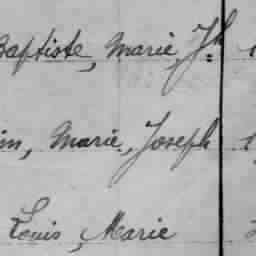 Baptiste, Marie, Jh 1
im, Marie, Joseph 1
Louis, Marie